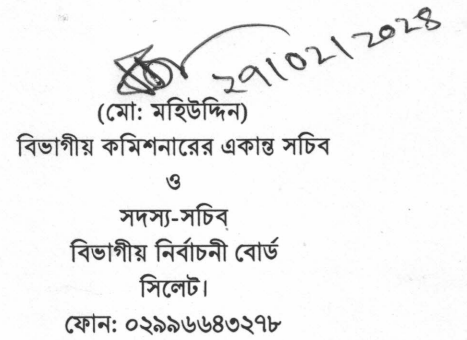 29/02/2028
(মো: মহিউদ্দিন)
বিভাগীয় কমিশনারের একান্ত সচিব
ও
সদস্য-সচিব
বিভাগীয় নির্বাচনী বোর্ড
সিলেট।
ফোন: ০২৯৯৬৬৪৩২৭৮